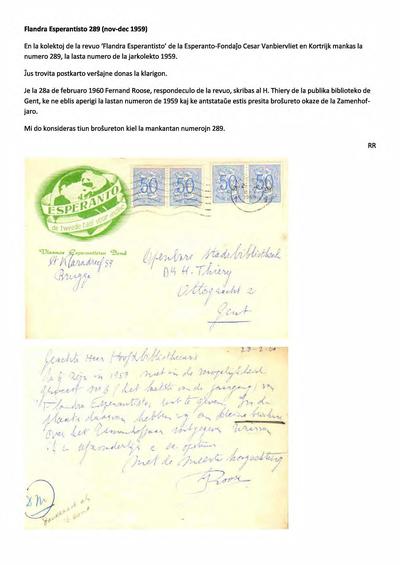 Flandra Esperantisto 289 (nov-dec 1959)
En la kolektoj de la revuo ‘Flandra Esperantisto’ de la Esperanto-Fondaĵo Cesar Vanbiervliet en Kortrijk mankas la
numero 289, la lasta numero de la jarkolekto 1959.
Ĵus trovita postkarto verŝajne donas la klarigon.
Je la 28a de februaro 1960 Fernand Roose, respondeculo de la revuo, skribas al H. Thiery de la publika biblioteko de
Gent, ke ne eblis aperigi la lastan numeron de 1959 kaj ke anstataŭe estis presita broŝureto okaze de la Zamenhof-
jaro.
Mi do konsideras tiun broŝureton kiel la mankantan numerojn 289.
RR
50 50 50 50
ESPERANTO
de tweede taal voor allen
Vlaamse Esperantisten Bond
St Klaradreef 59
Brugge
Openbare Stadsbibliotheek
Dhr H. Thiery
Ottogracht 2
Gent
28-2-60
Geachte Heer Hoofdbibliothecaris
Wij zijn in 1959 niet in de mogelijkheid
geweest het laatste van de jaargang van
Flandra Esperantisto uit te geven. In de
plaats daarvan hebben wij een kleine brochure
over het Zamenhofjaar uitgegeven
ik U afzonderlijk
Met de meeste hoogachting
Roose